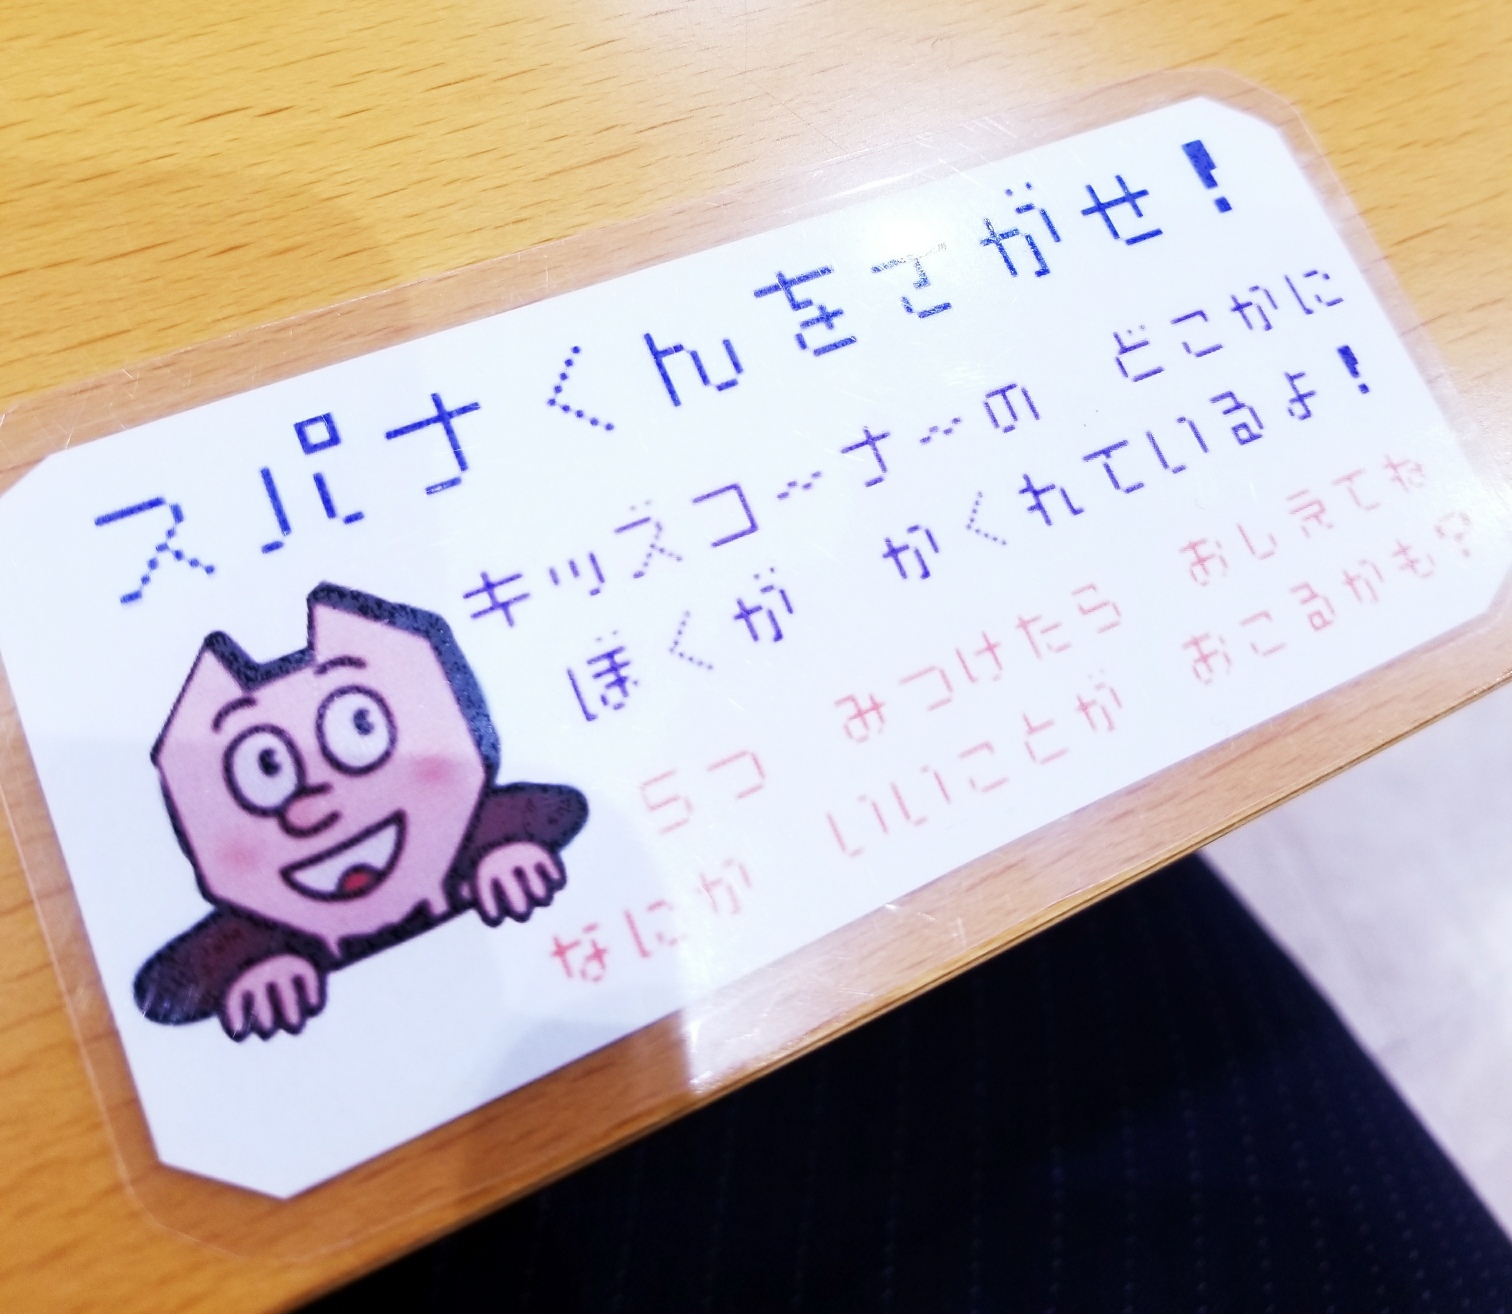 スパナくんをさがせ!
キッズコーナーの どこかに
ぼくが かくれているよ!
5つ みつけたら おしえてね
なにか いいことが おこるかも?